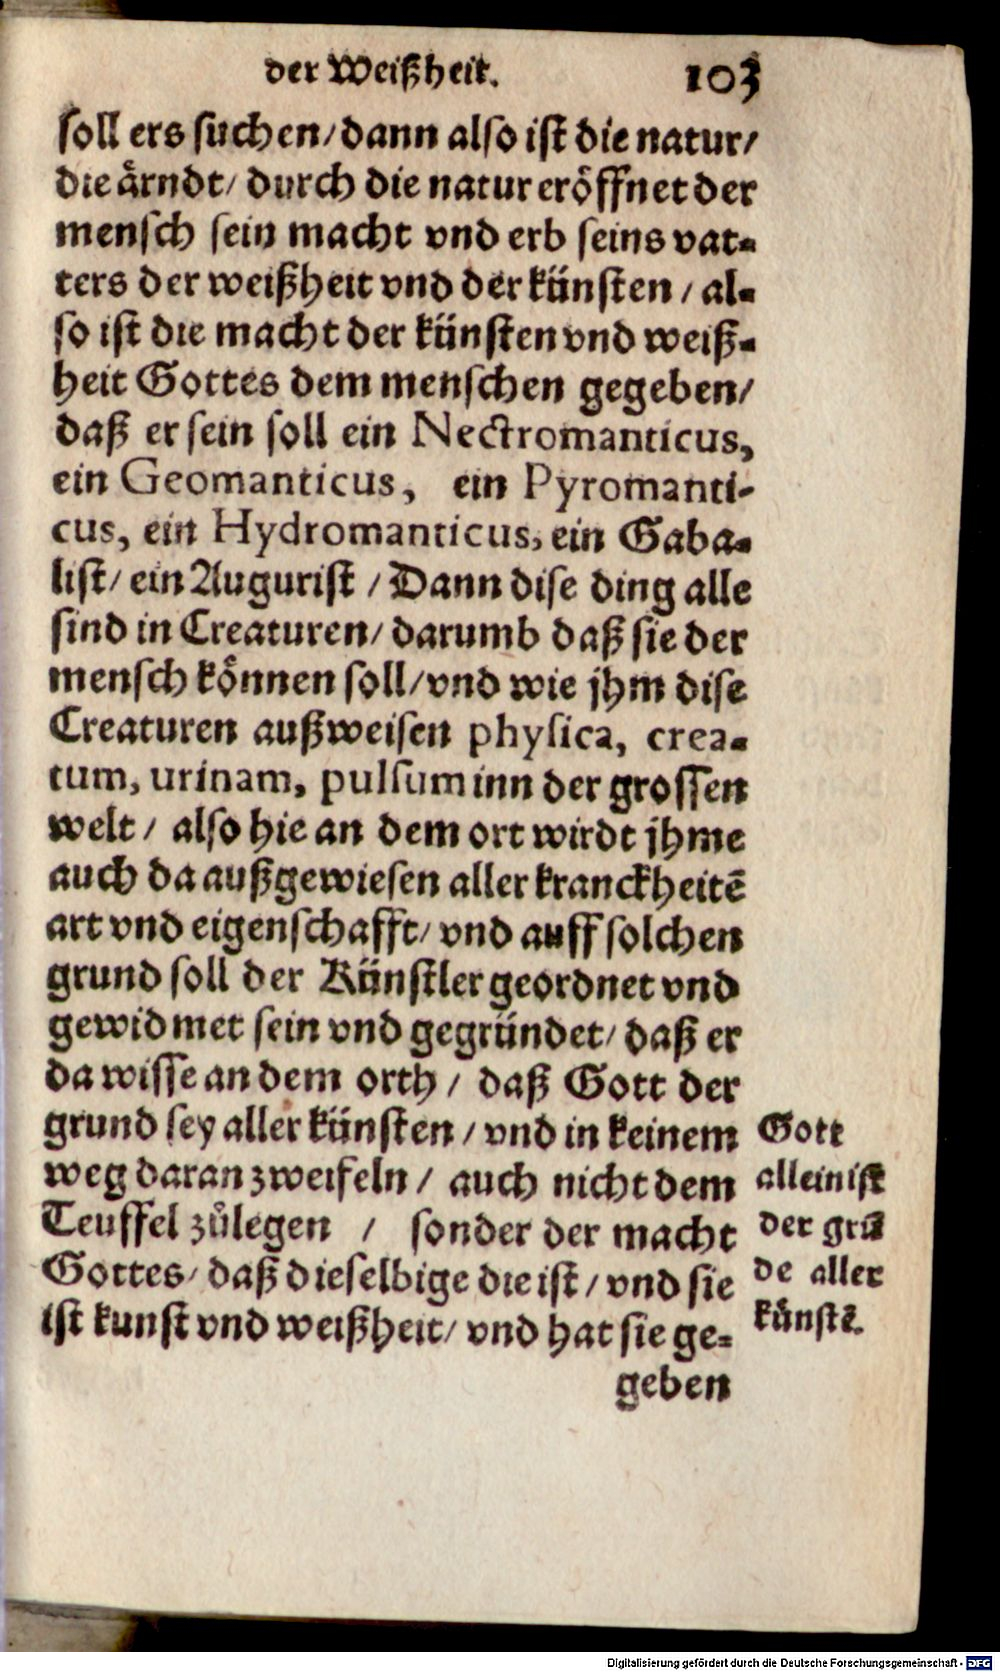 der Weißheit. 103
soll ers suchen/dann also ist die natur/
die ärndt/ durch die natur eröffnet der
mensch sein macht vnd erb seins vat-
ters der weißheit vnd der künsten / al-
so ist die macht der künsten vnd weiß-
heit Gottes dem menschen gegeben/
daß er sein soll ein Nectromanticus,
ein Geomanticus, ein Pyromanti-
cus, ein Hydromanticus, ein Gaba-
list/ ein Augurist / Dann dise ding alle
sind in Creaturen/ darumb daß sie der
mensch können soll/vnd wie jhm dise
Creaturen außweisen physica, crea-
tum, urinam, pulsum inn der grossen
welt / also hie an dem ort wirdt jhme
auch da außgewiesen aller kranckheitē
art vnd eigenschafft/ vnd auff solchen
grund soll der Künstler geordnet vnd
gewidmet sein vnd gegründet/ daß er
da wisse an dem orth / daß Gott der
grund sey aller künsten / vnd in keinem
weg daran zweifeln / auch nicht dem
Teuffel zůlegen / sonder der macht
Gottes/ daß dieselbige die ist / vnd sie
ist kunst vnd weißheit/ vnd hat sie ge-
geben
Gott
allein ist
der grū
de aller
künstē.
Digitalisierung gefördert durch die Deutsche Forschungsgemeinschaft - DFG